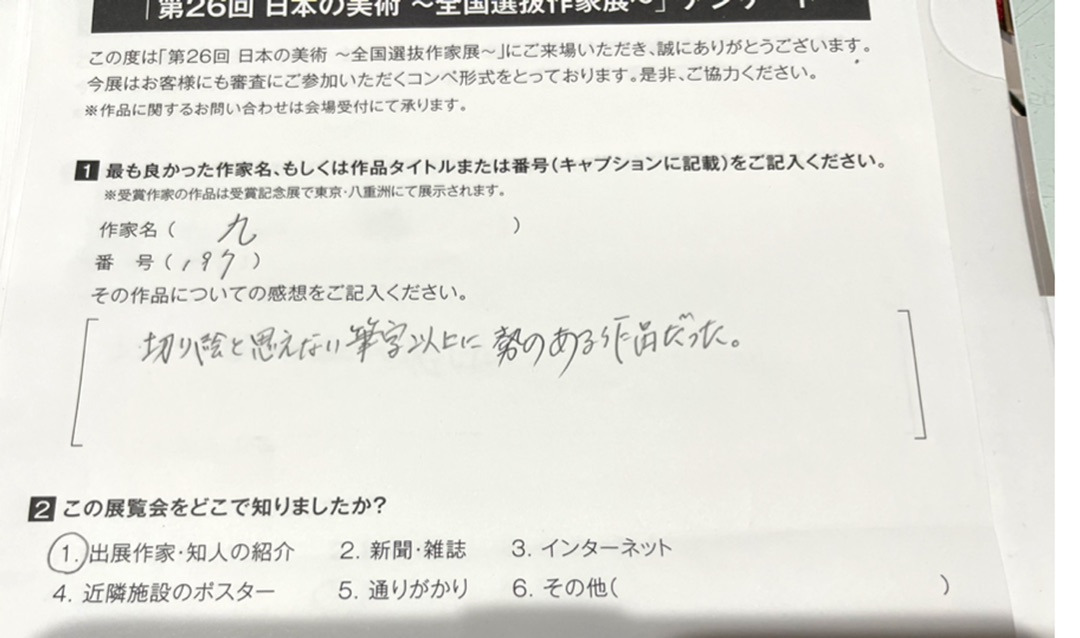 「第26回 日本の美術 ～全国選抜作家展～」アンケート
この度は「第26回 日本の美術 ～全国選抜作家展～」にご来場いただき、誠にありがとうございます。
今展はお客様にも審査にご参加いただくコンペ形式をとっております。是非、ご協力ください。
※作品に関するお問い合わせは会場受付にて承ります。
1 最も良かった作家名、もしくは作品タイトルまたは番号（キャプションに記載）をご記入ください。
※受賞作家の作品は受賞記念展で東京・八重洲にて展示されます。
作家名（ 九 ）
番 号（197）
その作品についての感想をご記入ください。
切り絵と思えない筆字以上に勢のある作品だった。
2 この展覧会をどこで知りましたか？
1. 出展作家・知人の紹介 2. 新聞・雑誌 3. インターネット
4. 近隣施設のポスター 5. 通りがかり 6. その他（ ）